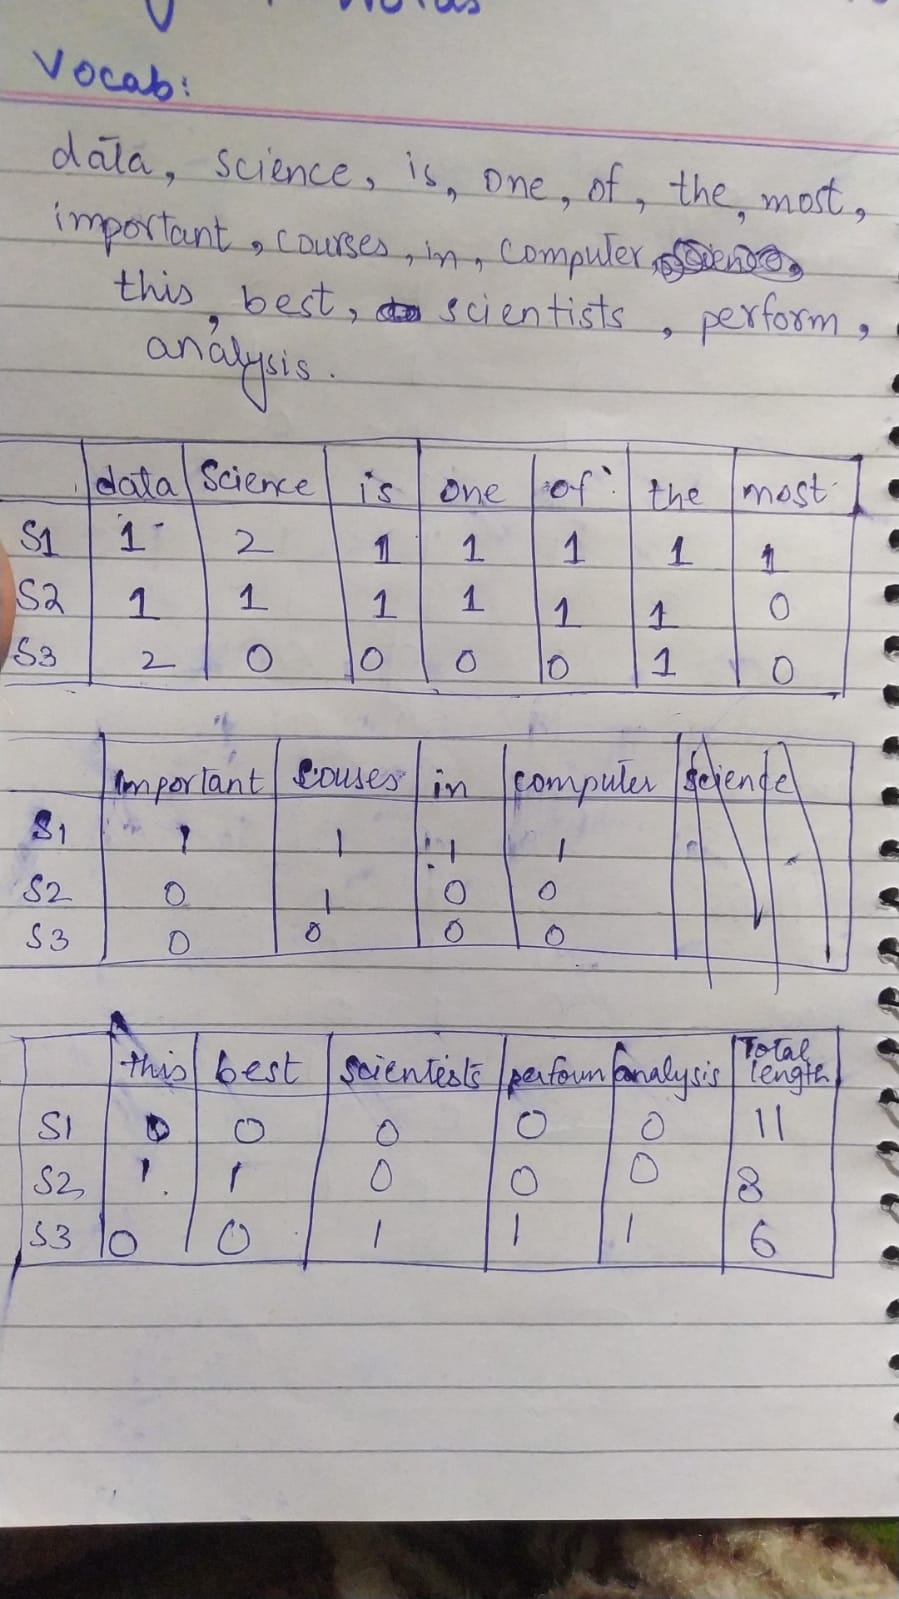 Vocab:
data, science, is, one, of, the, most,
important, courses, in, computer
this, best, scientists, perform,
analysis.
data science is one of the most
S1 1 2 1 1 1 1 1
S2 1 1 1 1 1 1 0
S3 2 0 0 0 0 1 0
important couses in computer science
S1 1 1 1 1
S2 0 1 0 0
S3 0 0 0 0
this best scientists perfoum analysis Total length
S1 0 0 0 0 0 11
S2 1 1 0 0 0 8
S3 0 0 1 1 1 6